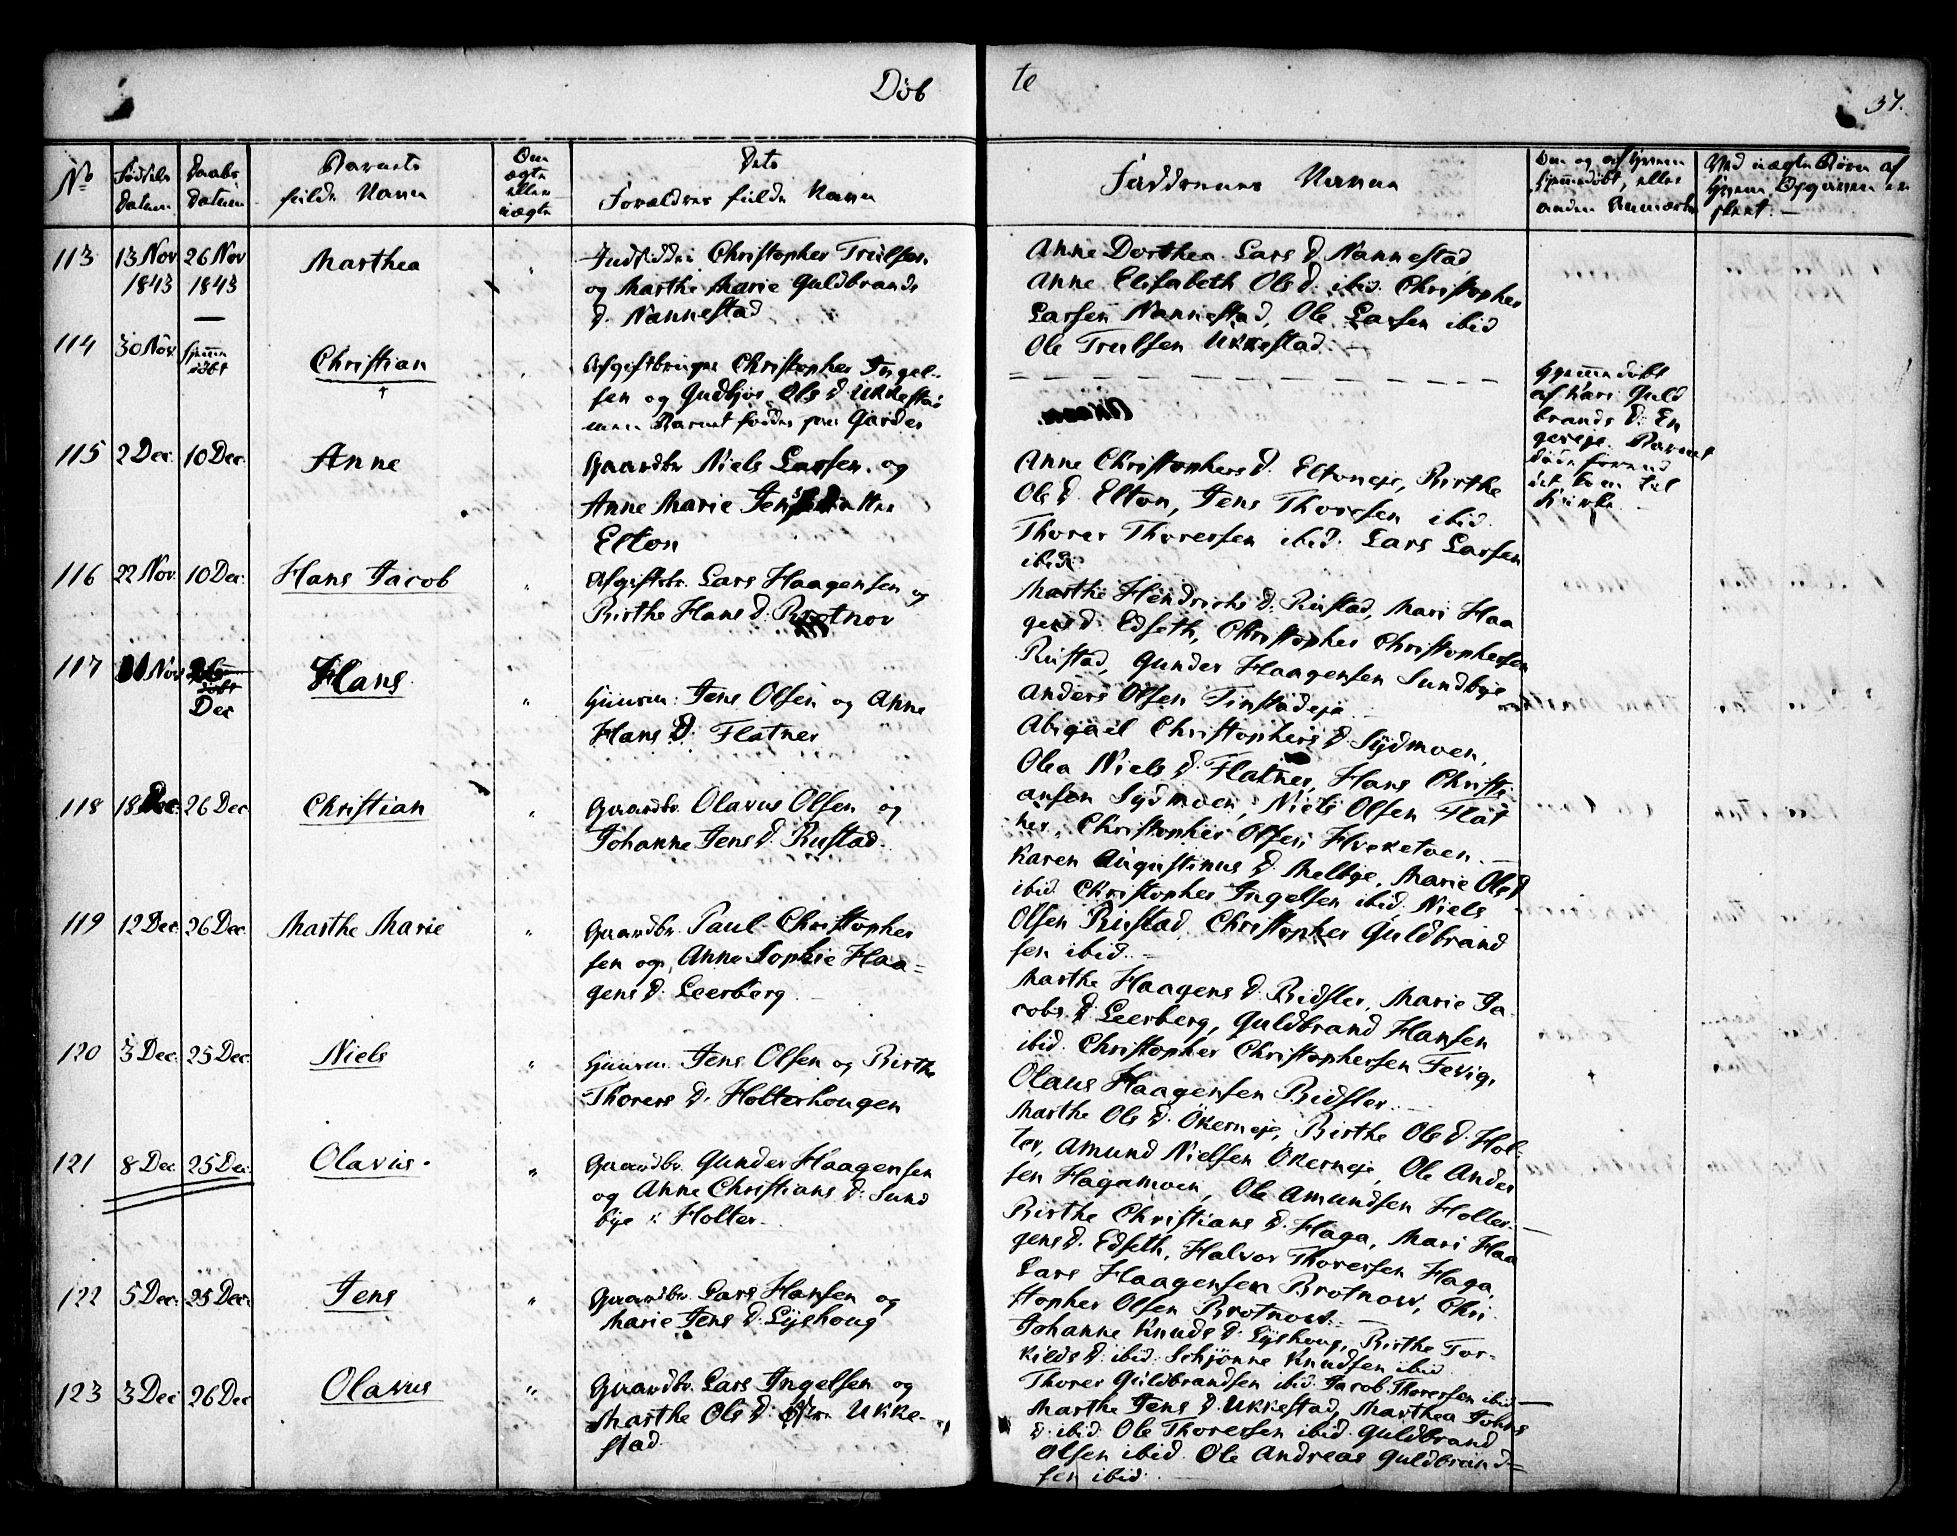 Døb te
37.
No
Fødsels Datum
Daabs Datum
Barnets fulde Navn
Om ægte eller uægte
Dets Forældres fulde Navn
Faddernes Navne
113 13 Nov 1843 26 Nov 1843 Marthea
Christopher Trulsen
og Marthe Marie Guldbrands
D. Nannestad
Anne Dorthea Lars D. Nannestad
Anne Elisabeth Ols D. ibid. Christopher
Larsen Nannestad, Ole Larsen ibid
Ole Trulsen Ukkestad. —
114 30 Nov. hjemmedøbt Christian †
Afgiftbruger Christopher Ingel-
sen og Gudbjør Ols D. Ukkestad
men Barnet fødder paa Garder
Hjemmedøbt
af Kari Guld
brands D. En
gereje. Barnet
døde forend
det kom til
Kirke.
115 2 Dec. 10 Dec. Anne
Gaardbr. Niels Larsen og
Anne Marie Jens
Elton
Anne Christophers D. Eltoneje, Birthe
Ole D. Elton, Jens Thoresen ibid.
Thorer Thorersen ibid. Lars Larsen
ibid.
116 22 Nov. 10 Dec. Hans Jacob
Afgiftsbr. Lars Haagensen og
Birthe Hans D. Brotnov
Marthe Hendrichs D. Rustad, Mari Haa
gens D. Edseth, Christopher Christophersen
Rustad, Gunder Haagensen Sundbye
Anders Olsen Tinstadeje
117 Nov Dec Hans
Huusm. Jens Olsen og Anne
Hans D. Flatner
Abigael Christophers D. Sydmoen,
Olea Niels D. Flatner, Hans Christi
ansen Sydmoen, Niels Olsen Flat
ner, Christopher Olsen Hveketoen. —
118 18 Dec. 26 Dec. Christian
Gaardbr. Olavus Olsen og
Johanne Jens D. Rustad.
Karen Augustinus D. Melbye, Marie Ols D.
ibid. Christopher Ingelsen ibid. Niels
Olsen Rustad, Christopher Guldbrand
sen ibid. —
119 12 Dec. 26 Dec. Marthe Marie
Gaardbr. Paul Christopher
sen og Anne Sophie Haa=
gens D. Leerberg
Marthe Haagens D. Bidsler, Marie Ja
cobs D. Leerberg, Guldbrand Hansen
ibid. Christopher Christophersen Fexig,
Olaus Haagensen Bidsler.
120 3 Dec. 25 Dec. Niels
Huusm. Jens Olsen og Birthe
Thorers D. Holterhougen
Marthe Ole D. Økerneje, Birthe Ole D. Hol-
ter, Amund Nielsen Økerneje, Ole Ander
sen Hagamoen, Ole Amundsen Holter. —
121 8 Dec. 25 Dec. Olavus.
Gaardbr. Gunder Haagensen
og Anne Christians D. Sund
bye i Holter.
Birthe Christians D. Haga, Mari Haa
gens D. Edseth, Halvor Thorersen Haga,
Lars Haagensen Brotnow, Chri
stopher Olsen Brotnow.
122 5 Dec. 25 Dec. Jens
Gaardbr. Lars Hansen og
Marie Jens D. Lyshoug
Johanne Knuds D. Lyshoug, Birthe Tor-
kilds D. ibid. Schjønne Knudsen ibid.
Thorer Guldbrandsen ibid. Jacob Thorersen ibid —
123 3 Dec 26 Dec Olavus
Gaardbr. Lars Ingelsen og
Marthe Ols D. Ukke-
stad.
Marthe Jens D. Ukkestad, Marthea Johns
D. ibid. Ole Thorersen ibid. Guldbrand
Olsen ibid. Ole Andreas Guldbrand=
sen ibid.